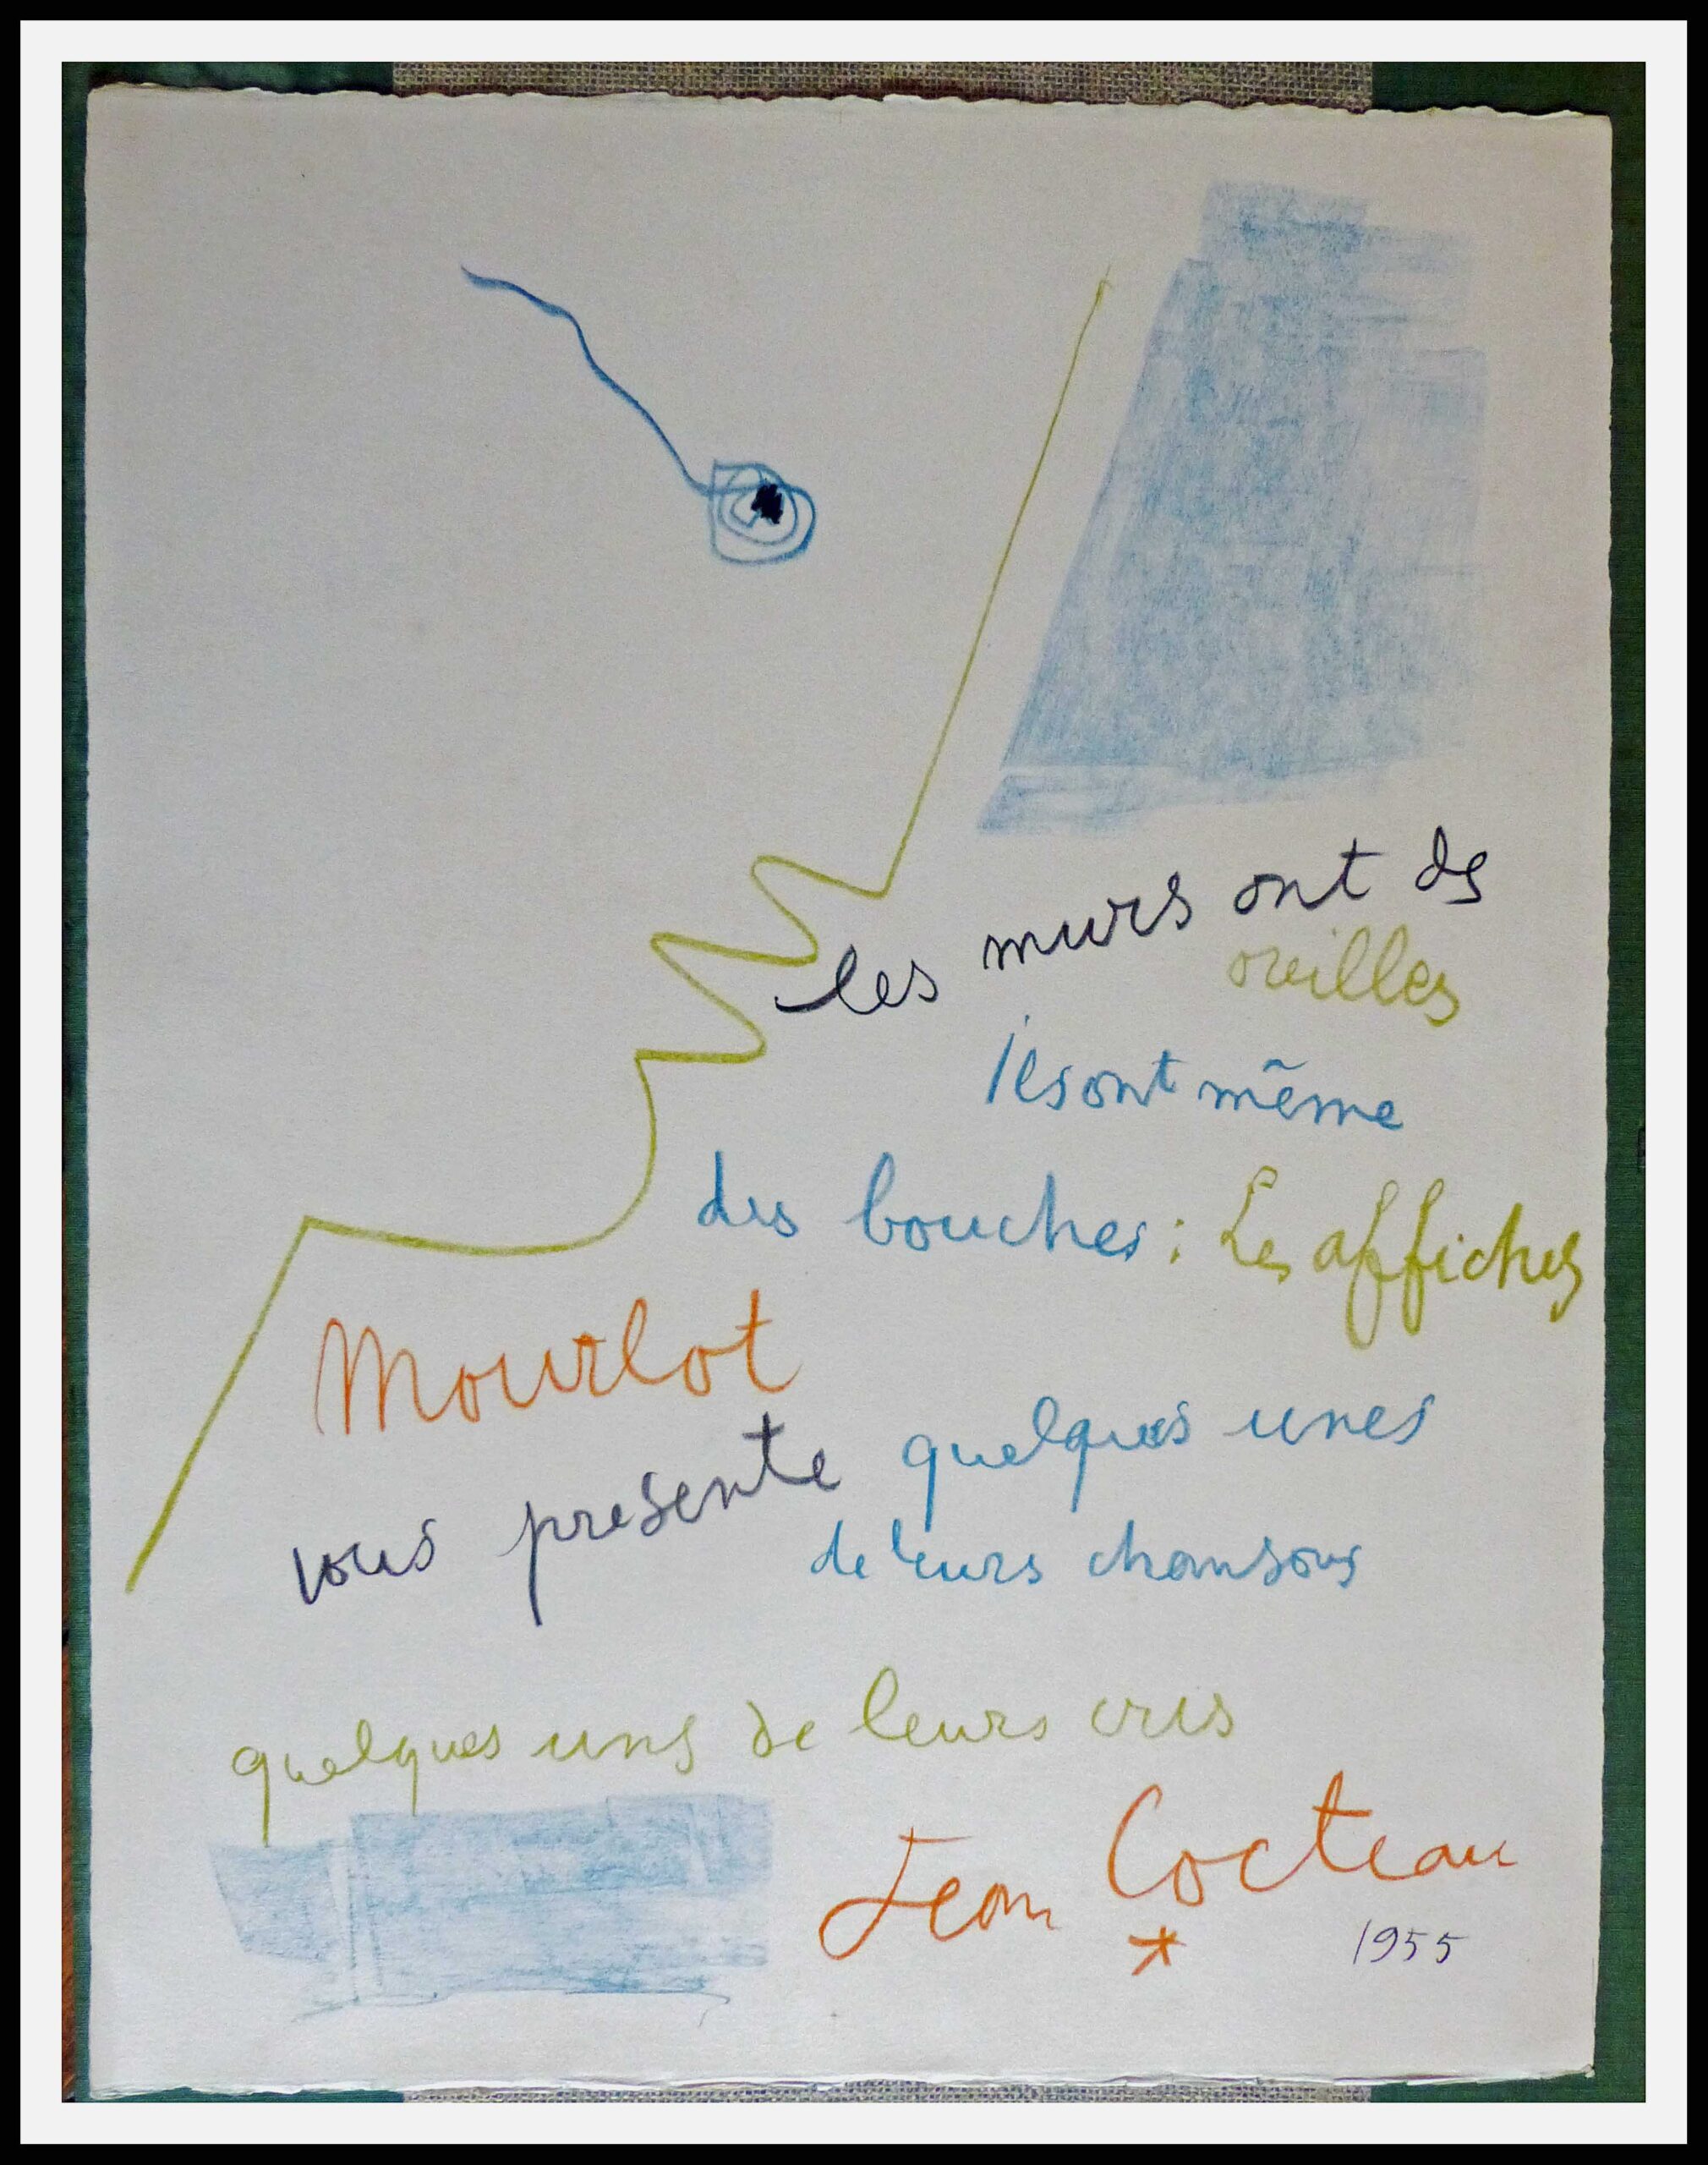 les murs ont des
oreilles
ils ont même
des bouches : Les affiches
Mourlot
vous présente quelques unes
de leurs chansons
quelques uns de leurs cris
Jean Cocteau
*
1955